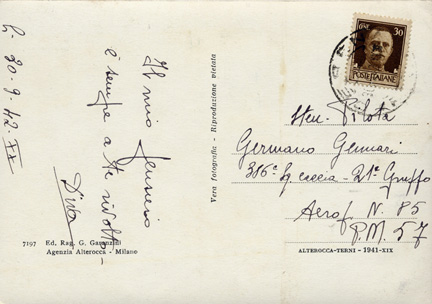 Lì 20-9-42-XX
Il mio pensiero
è sempre a te rivolto-
Dina
7197 Ed. Rag. G. Garanzini
Agenzia Alterocca - Milano
Vera fotografia - Riproduzione vietata
30
POSTE ITALIANE
Sten. Pilota
Germano Gennari
386ª Sq caccia - 21º Gruppo
Aerop. N. 85
P.M. 57
ALTEROCCA-TERNI - 1941-XIX